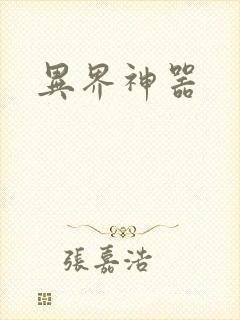 異界神器
張嘉浩